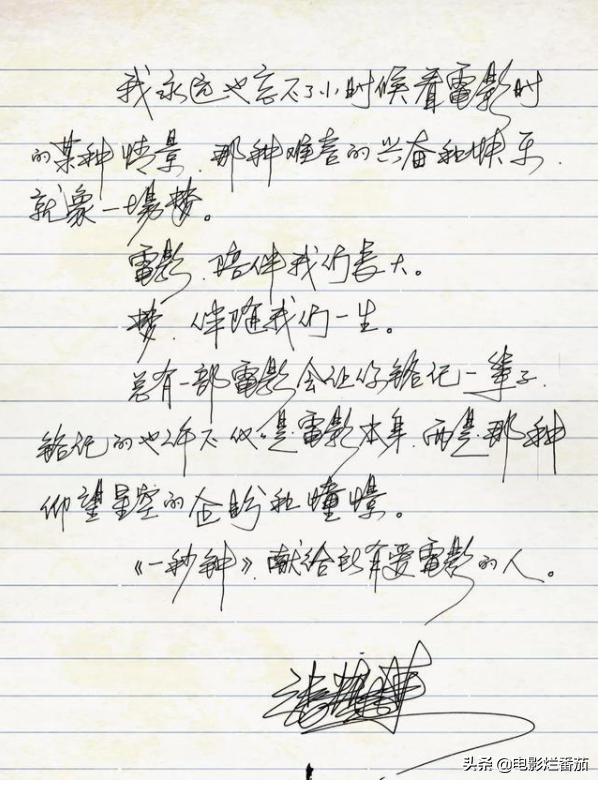 我永远也忘不了小时候看電影时
的某种情景,那种难言的兴奋和快乐,
就象一場梦。
電影,陪伴我们長大。
梦,伴随我们一生。
总有一部電影会让你铭记一辈子,
铭记的也许不仅仅是電影本身,而是那种
仰望星空的企盼和憧憬。
《一秒钟》,献给所有爱電影的人。
头条 @电影烂番茄